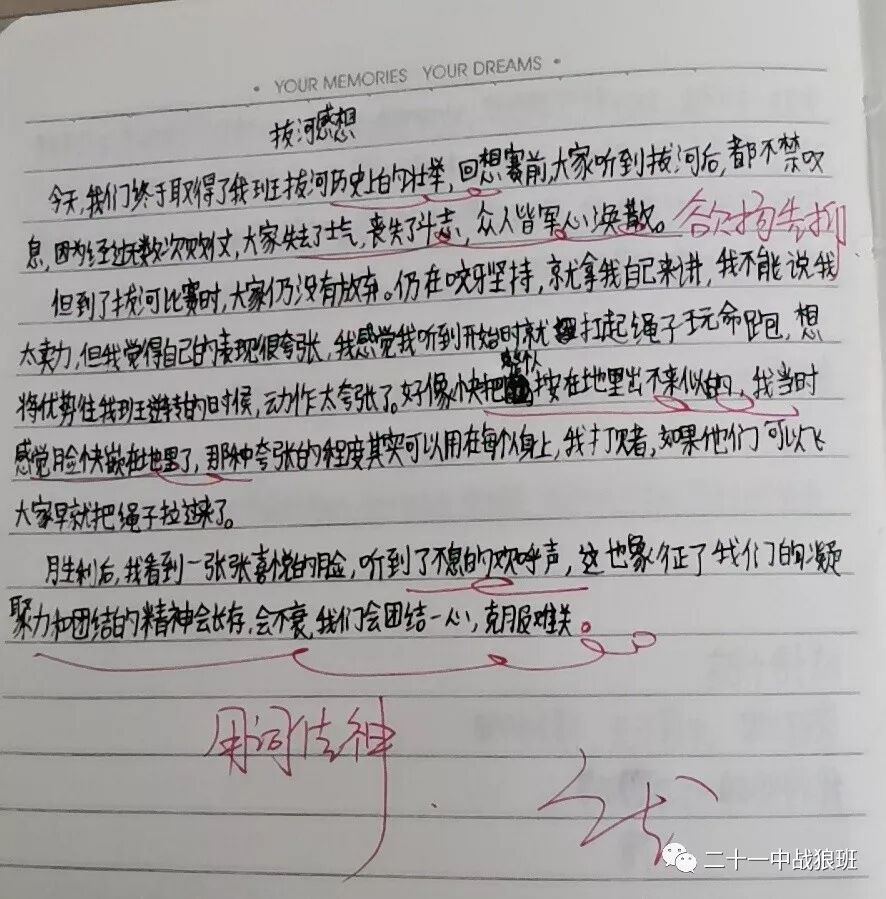 • YOUR MEMORIES YOUR DREAMS •
拔河感想
今天,我们终于取得了我班拔河历史上的壮举,回想赛前,大家听到拔河后,都不禁叹
息,因为经过无数次败仗,大家失去了士气,丧失了斗志,众人皆军心涣散。欲扬先抑
但到了拔河比赛时,大家仍没有放弃。仍在咬牙坚持,就拿我自己来讲,我不能说我
太卖力,但我觉得自己的表现很夸张,我感觉我听到开始时就扛起绳子玩命跑,想
将优势往我班逆转的时候,动作太夸张了。好像快把整个人按在地里出不来似的,我当时
感觉脸快嵌在地里了,那种夸张的程度其实可以用在每个人身上,我打赌,如果他们可以飞
大家早就把绳子拉过来了。
胜利后,我看到一张张喜悦的脸,听到了不息的欢呼声,这也象征了我们的凝
聚力和团结的精神会长存,会不衰,我们会团结一心,克服难关。
用词传神
二十一中战狼班